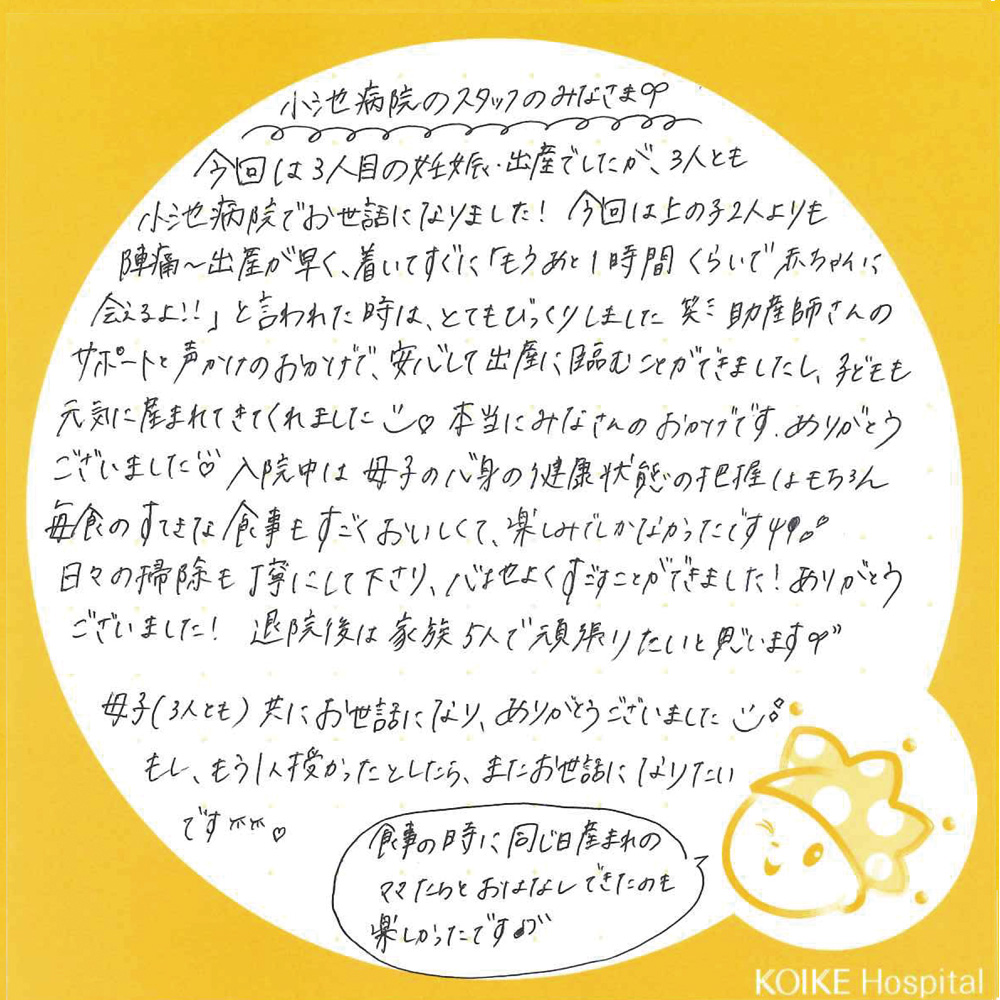 小池病院のスタッフのみなさま
今回は3人目の妊娠・出産でしたが、3人とも
小池病院でお世話になりました! 今回は上の子2人よりも
陣痛〜出産が早く、着いてすぐに「もうあと1時間くらいで赤ちゃんに
会えるよ!!」と言われた時は、とてもびっくりしました 笑 助産師さんの
サポートと声かけのおかげで、安心して出産に臨むことができましたし、子どもも
元気に産まれてきてくれました 本当にみなさんのおかげです。ありがとう
ございました 入院中は母子の心身の健康状態の把握はもちろん
毎食のすてきな食事もすごくおいしくて、楽しみでしかなかったです
日々の掃除も丁寧にして下さり、心地よくすごすことができました! ありがとう
ございました! 退院後は家族5人で頑張りたいと思います
母子(3人とも)共にお世話になり、ありがとうございました
もし、もう1人授かったとしたら、またお世話になりたい
です
食事の時に同じ日産まれの
ママたちとおはなしできたのも
楽しかったです
KOIKE Hospital